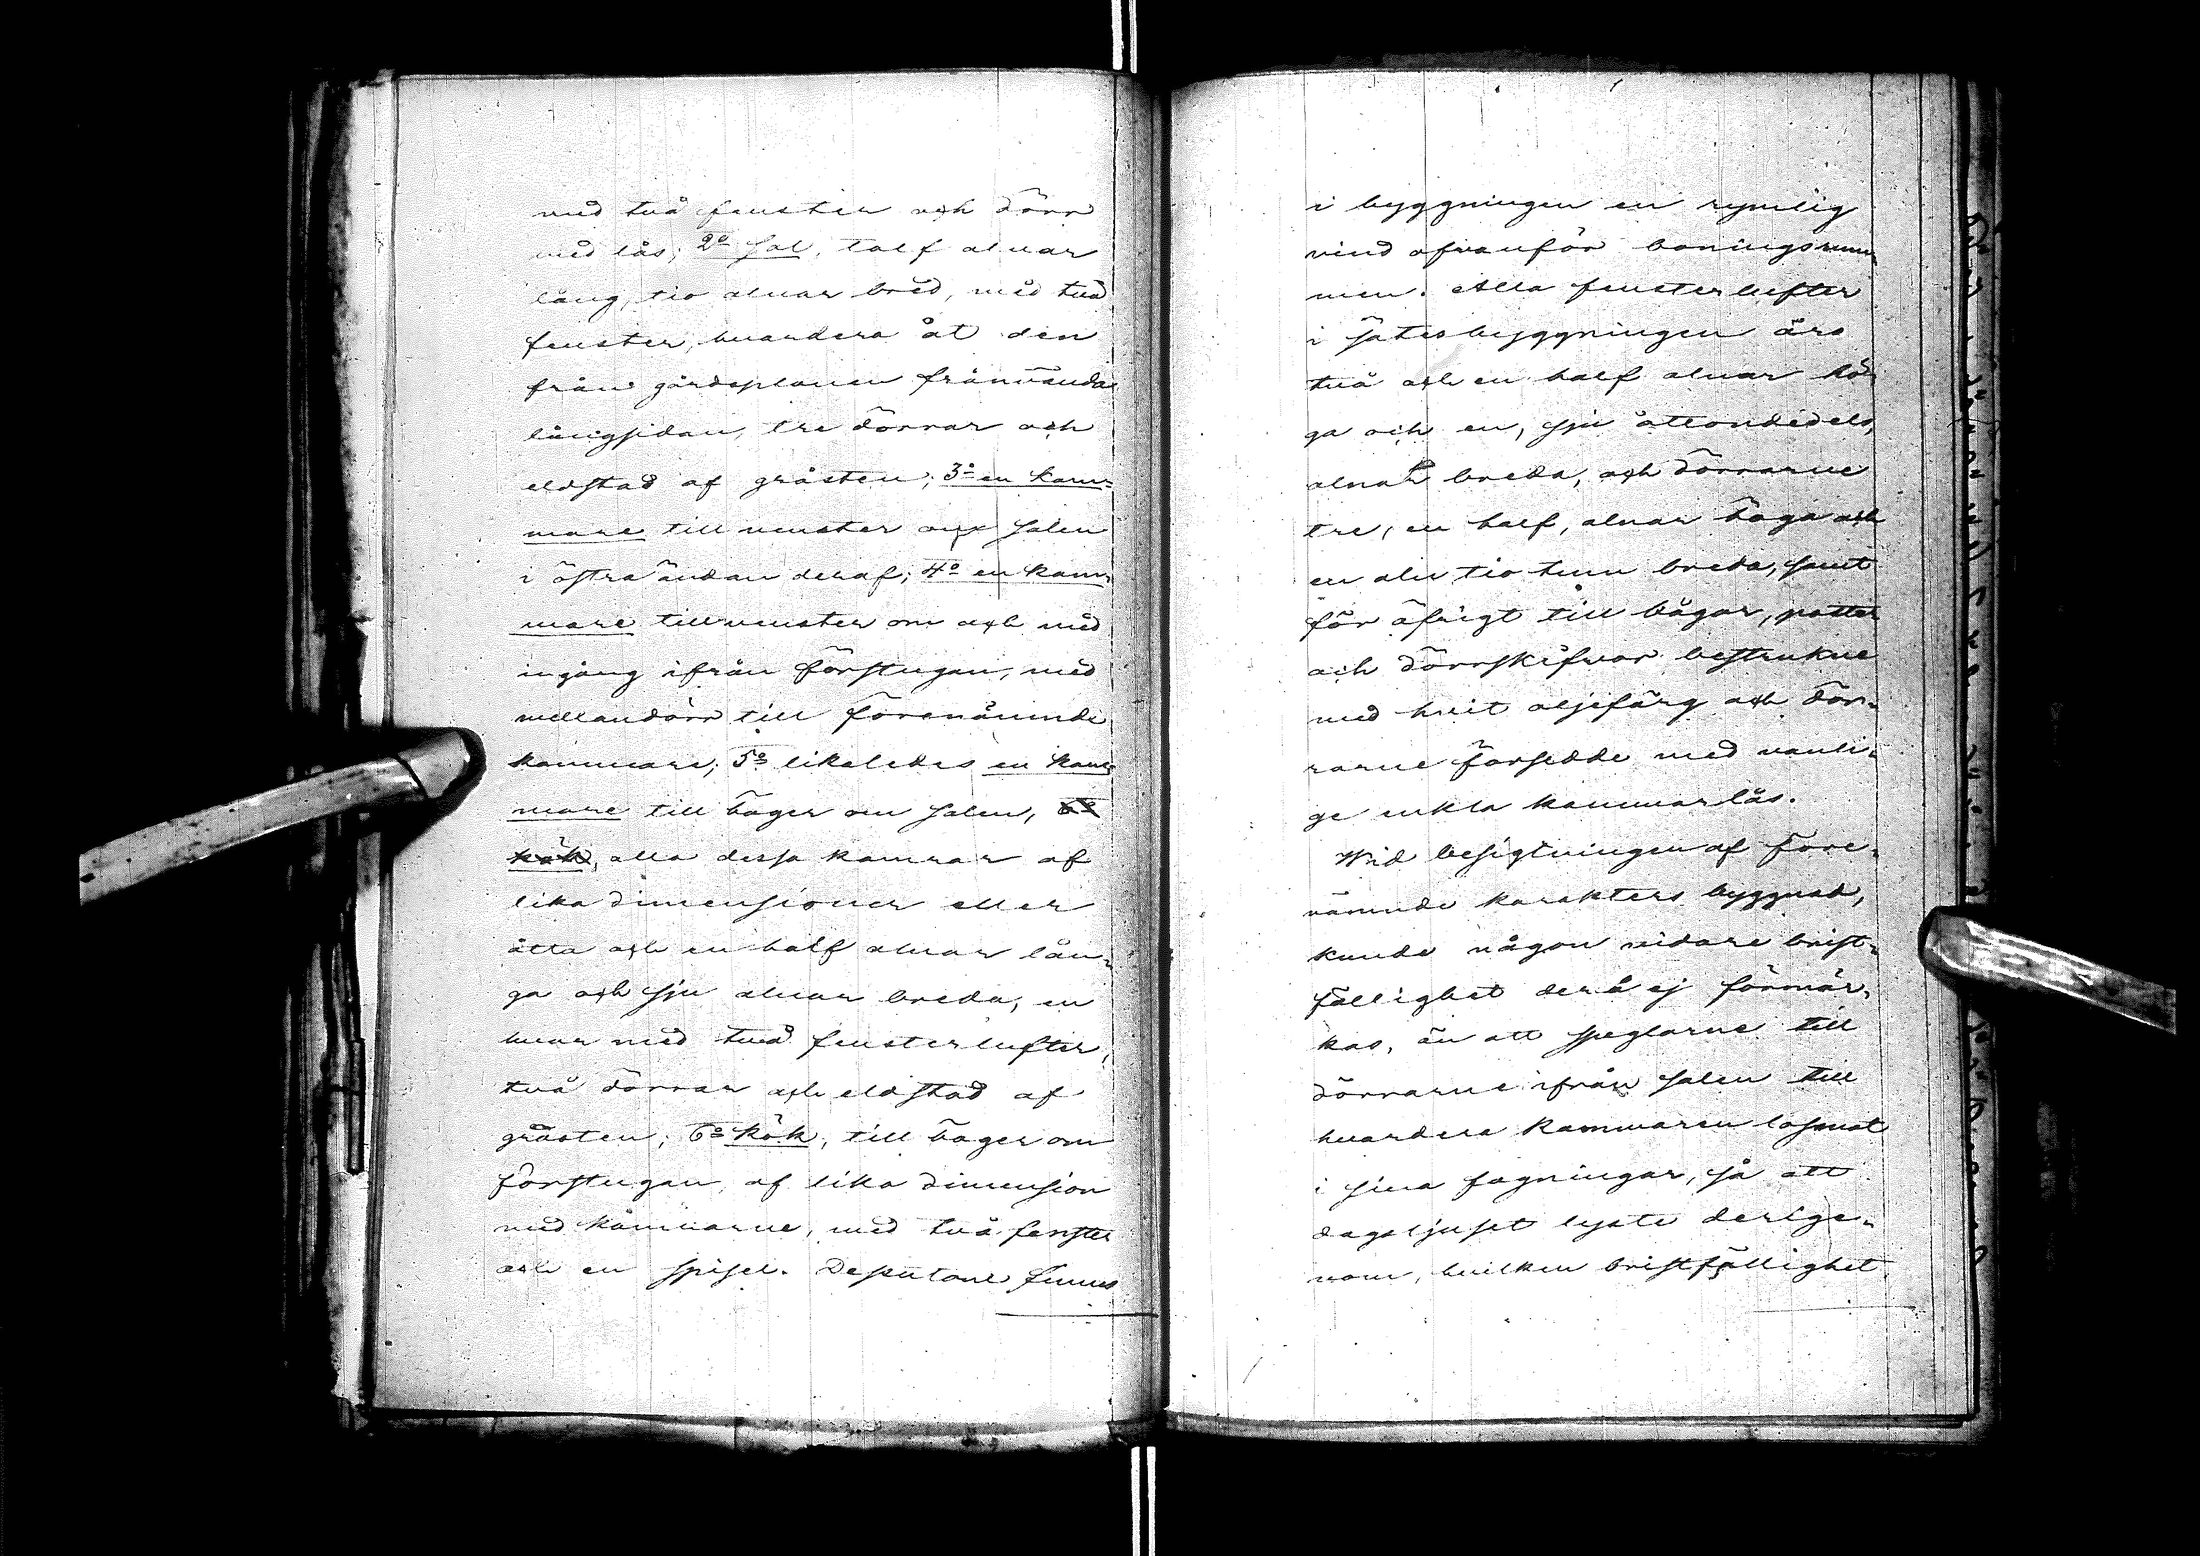 med två fenster och dörr
med lås; 2o Sal, tolf alnar
lång, tio alnar bred, med två
fenster, hvardera åt den
från gårdsplanen frånvända
långsidan, tre dörrar och
eldstad af gråsten; 3o en kam-
mare till venster om salen
i östra ändan deraf; 4o en kam-
mare till venster om och med
ingång ifrån förstugan, med
mellandörr till förenämnde
kammare; 5o likaledes en kam-
mare till höger om salen, 6o
kök, alla dessa kamrar af
lika dimensioner eller
åtta och en half alnar lån-
ga och sju alnar breda, en
hvar med två fensterlufter,
två dörrar och eldstad af
gråsten; 6o kök, till höger om
förstugan, af lika dimension
med kamrarne, med två fenster
och en spisel. Dessutom finnes
i byggningen en rymlig
vind ofvanför boningsrum-
men. Alla fensterlufter
i Sätesbyggningen äro
två och en half alnar hö-
ga och en, sju åttondedels,
alnar breda, och dörrarne
tre, en half, alnar höga och
en aln tio tum breda, samt
för öfrigt till bågar, poster
och dörrskifvor bestrukne
med hvit oljefärg och dör-
rarne försedde med vanli-
ge enkla kammarlås.
Wid besigtningen af före-
nämnde karakters byggnad,
kunde någon vidare brist-
fällighet derå ej förmär-
kas, än att speglarne till
dörrarne ifrån salen till
hvardera kammaren losnat
i sina fogningar, så att
dagsljuset lyste derige-
nom, hvilken bristfällighet